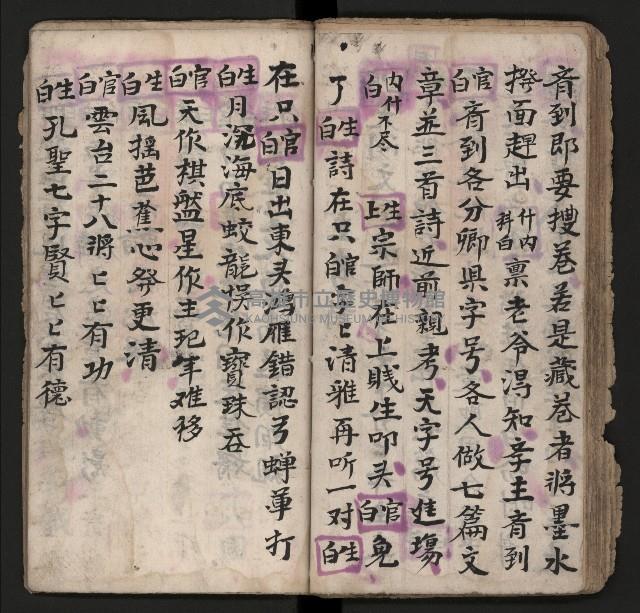 斉到即要搜卷若是藏卷者將墨水
搽面趕出 什内科白 禀老爷淂知辛主斉到
官白 斉到各分卿県字号各人做七篇文
章並三首詩近前親考天字号進塲
内什不尽白 生上 宗師在上賤生叩头 官白 免
了 生白 詩在只 官白 句匕清雅再听一对 生白
在只 官白 日出東头鴻雁錯認弓蝉草打
生白 月深海底蛟龍悮作寳珠吞
官白 天作棋盤星作主 年难移
生白 風摇芭蕉心 更清
官白 雲台二十八將匕匕有功
生白 孔聖七字賢匕匕有德
高雄市立歷史博物館
KAOHSIUNG MUSEUM OF HISTORY